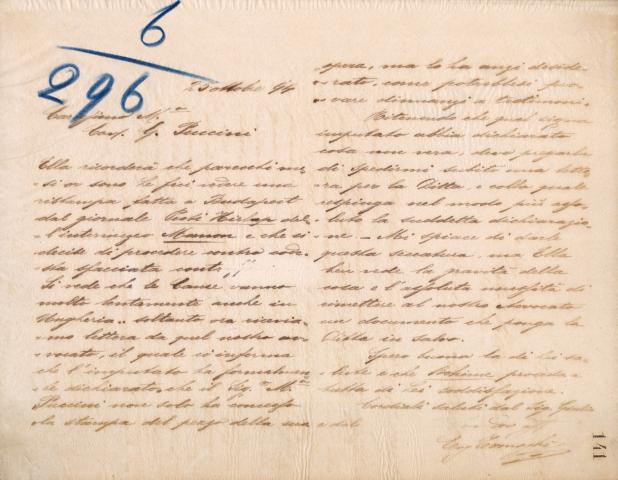 6
296
25 ottobre 94
Carissimo M.º
Cav. G. Puccini
Ella ricorderà che parecchi me-
-si or sono le feci vedere una
ristampa fatta a Budapest
dal giornale Pesti Hirlap del-
-l'intermezzo Manon e che si
decise di procedere contro
sfacciata
Si vede che le Cause vanno
molto lentamente anche in
Ungheria - soltanto ora ricevia-
-mo lettera da quel nostro av-
-vocato, il quale ci informa
che l'imputato ha formalmen-
-te dichiarato, che il Sig.r M.º
Puccini non solo ha concesso
la stampa del pezzo della sua
opera, ma lo ha anzi deside-
-rato, come potrebbesi pro-
-vare dinnanzi a testimoni.
Ritenendo che quel signor
imputato abbia dichiarato
cosa non vera, devo pregarla
di spedirmi subito una lette-
-ra per la Ditta, e colla quale
respinga nel modo più
-luto la suddetta dichiarazio-
-ne. - Mi spiace di darle
questa seccatura, ma Ella
ben vede la gravità della
cosa e l'assoluta necessità di
rimettere al nostro Avvocato
un documento che ponga la
Ditta in salvo.
Spero buona la di Lei sa-
-lute e che Bohème proceda
di Lei soddisfazione.
Cordiali saluti dal Sig. Giulio
e dal
141